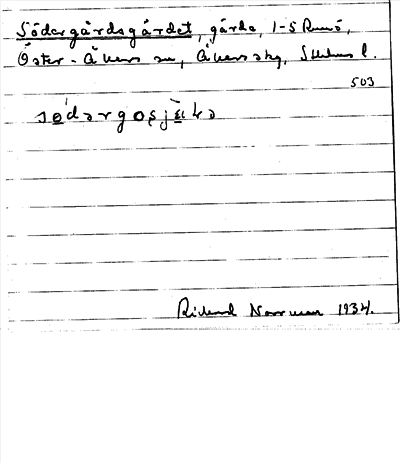 Södergårdsgärdet, gärde, 1-5 Runö,
Öster-Åkers sn, Åkers skg, Sthlms l.
503
Rickard Norrman 1934.